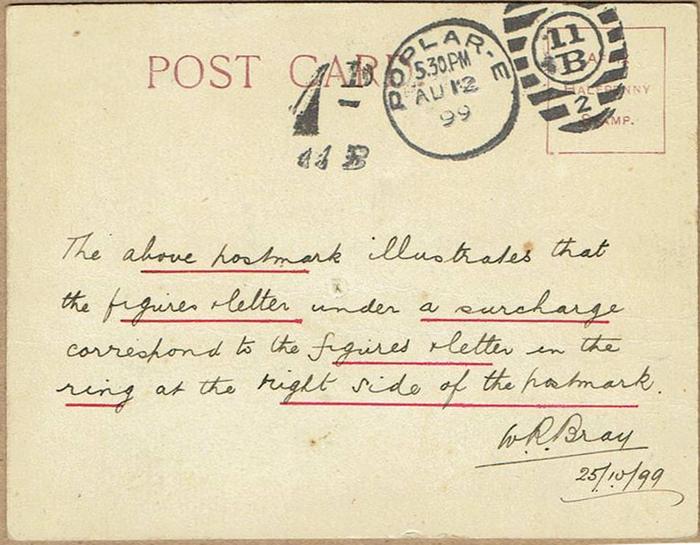 POST CARD
1 D
11 B
POPLAR-E
5.30.PM
AU 12
99
11
B
2
HALFPENNY
STAMP.
The above postmark illustrates that
the figures & letter under a surcharge
correspond to the figures & letter in the
ring at the right side of the postmark.
W.R.Bray
25/10/99